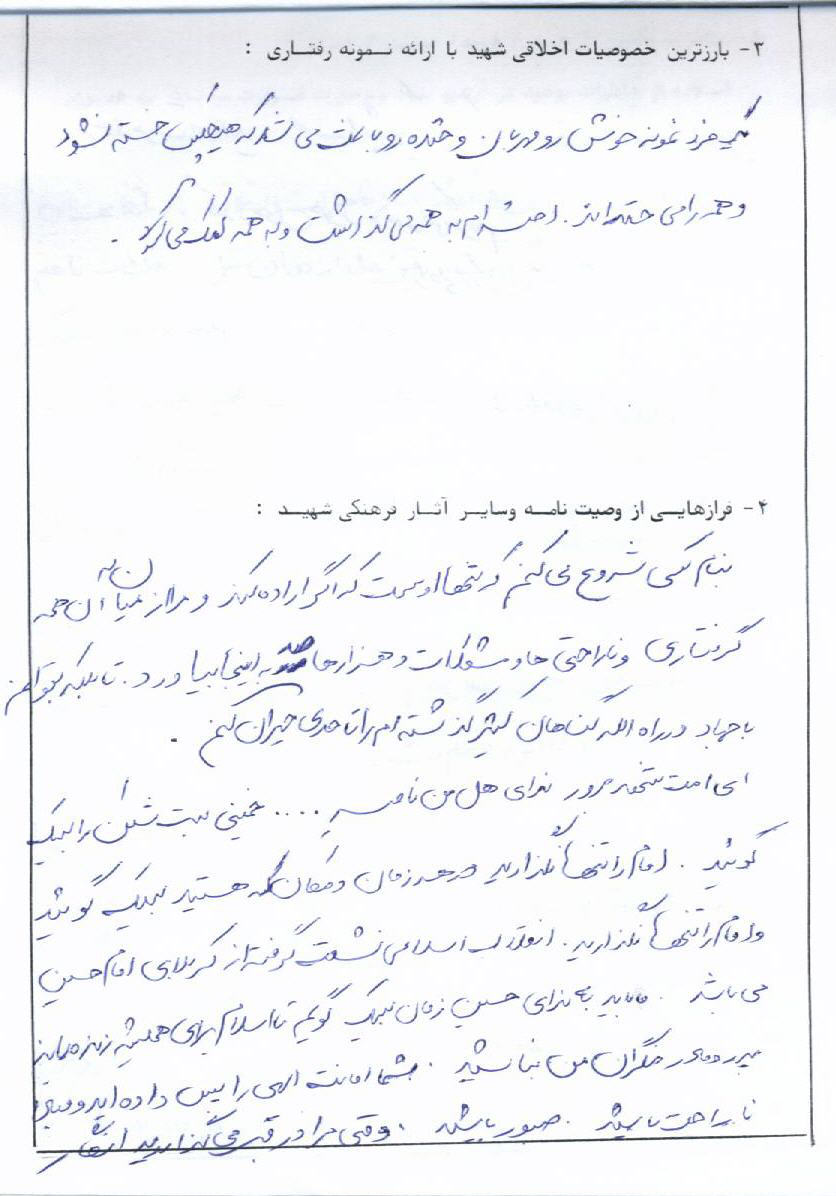 ۳- بارزترین خصوصیات اخلاقی شهید با ارائه نمونه رفتاری :
یک فرد نمونه خوش رو مهربان و خنده رو باعث می شد که هیچکس خسته نشود
و همه را می خنداند . احترام به همه می گذاشت و به همه کمک می کرد .
۴- فرازهایی از وصیت نامه وسایر آثار فرهنگی شهید :
بنام کسی شروع می کنم که تنها اوست که اگر اراده کند و مرا از میان آن همه
گرفتاری و ناراحتی ها و مشکلات و هزارها به اینجا بیاورد . تا بلکه بتوانم
با جهاد در راه الله گناهان کثیر گذشته ام را تا حدی جبران کنم .
ای امت شهید پرور ندای هل من ناصر .... خمینی بت شکن را لبیک
گوئید . امام را تنها نگذارید در هر زمان و مکان که هستید لبیک گوئید
و امام را تنها نگذارید . انقلاب اسلامی نشعت گرفته از کربلای امام حسین
می باشد . ما باید به ندای حسین زمان لبیک گوئیم تا اسلام برای همیشه زنده بماند
پدر و مادر نگران من نباشید . شما امانت الهی را پس داده اید و نباید
ناراحت باشید . صبور باشید . وقتی مرا در قبر می گذارید